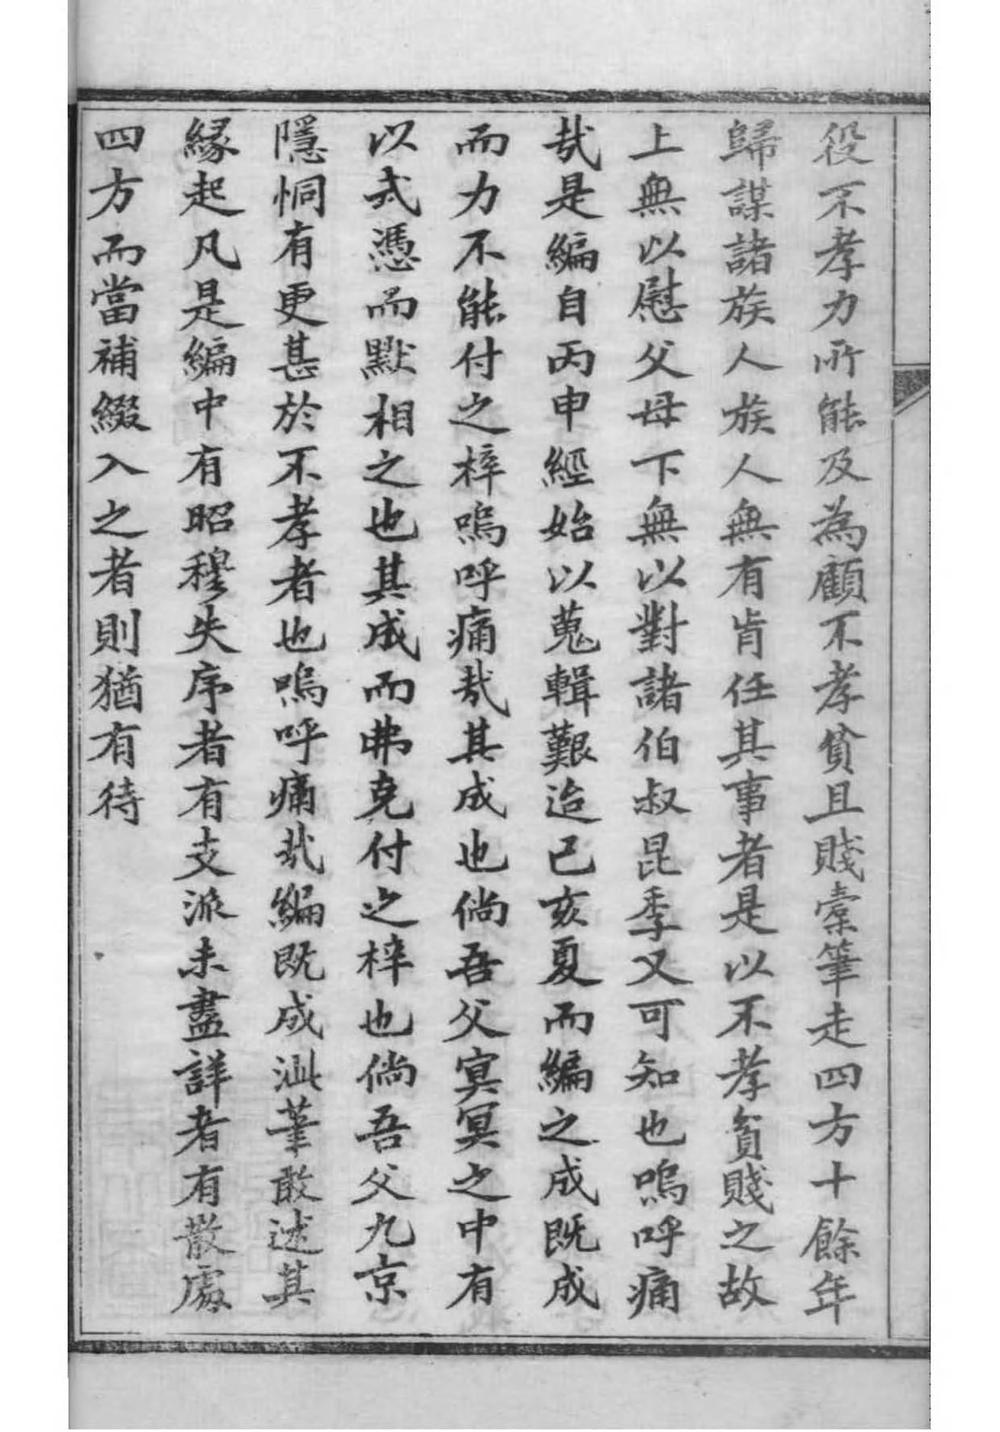 役不孝力所能及為顧不孝貧且賤橐筆走四方十餘年
歸謀諸族人族人無有肯任其事者是以不孝貧賤之故
上無以慰父母下無以對諸伯叔昆季又可知也嗚呼痛
哉是編自丙申經始以蒐輯艱迨己亥夏而編之成既成
而力不能付之梓嗚呼痛哉其成也倘吾父寞冥之中有
以式憑而默相之也其成而弗克付之梓也倘吾父九京
隱恫有更甚於不孝者也嗚呼痛哉編既成汕筆敢述其
緣起凡是編中有昭穆失序者有支派未盡詳者有散處
四方而當補綴入之者則猶有待